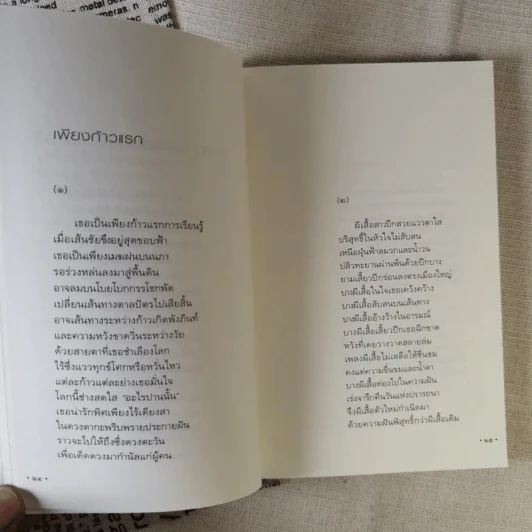 เพียงก้าวแรก
(๑)
เธอเป็นเพียงก้าวแรกการเรียนรู้
เมื่อเส้นชัยซึ่งอยู่สุดขอบฟ้า
เธอเป็นเพียงเมฆฝนบนนภา
รอร่วงหล่นลงมาสู่พื้นดิน
อาจลมบนโบยโบกกรรโชกพัด
เปลี่ยนเส้นทางตาลปัตรไปเสียสิ้น
อาจเส้นทางระหว่างก้าวเกิดพังภินท์
และความหวังขาดวิ่นระหว่างวัย
ด้วยสายตาที่เธอชำเลืองโลก
ไร้ซึ่งแววทุกข์โศกหรือหวั่นไหว
แต่ละก้าวแต่ละย่างเธอมั่นใจ
โลกนี้ช่างสดใส "อะไรปานนั้น"
เธอน่ารักพิศเพียงไร้เดียงสา
ในดวงตากะพริบพรายประกายฝัน
ราวจะไปให้ถึงซึ่งดวงตะวัน
เพื่อเด็ดดวงมากำนัลแก่ผู้คน
• ๒๔ •
(๒)
ผีเสื้อสาวปีกสวยแววตาใส
บริสุทธิ์ในหัวใจไม่สับสน
เหนือฝุ่นฟ้าลมวกและน้ำวน
ปลิวทะยานผ่านพ้นด้วยปีกบาง
ยามเสี้ยวปีกร่อนลงตรงเมืองใหญ่
บางผีเสื้อในใจเธอเคว้งคว้าง
บางผีเสื้อสับสนบนเส้นทาง
บางผีเสื้ออ้างว้างในอารมณ์
บางผีเสื้อเสี้ยวปีกเธอฉีกขาด
หวังที่เคยวางวาดสลายล่ม
เพลงผีเสื้อไม่เหลือให้ชื่นชม
คงแต่ความขื่นขมและน้ำตา
บางผีเสื้อท่องไปในความฝัน
เร่งจาริกคืนวันแห่งปรารถนา
จึงผีเสื้อตัวใหม่กำเนิดมา
ด้วยความฝันพิสุทธิ์กว่าผีเสื้อเดิม
• ๒๕ •